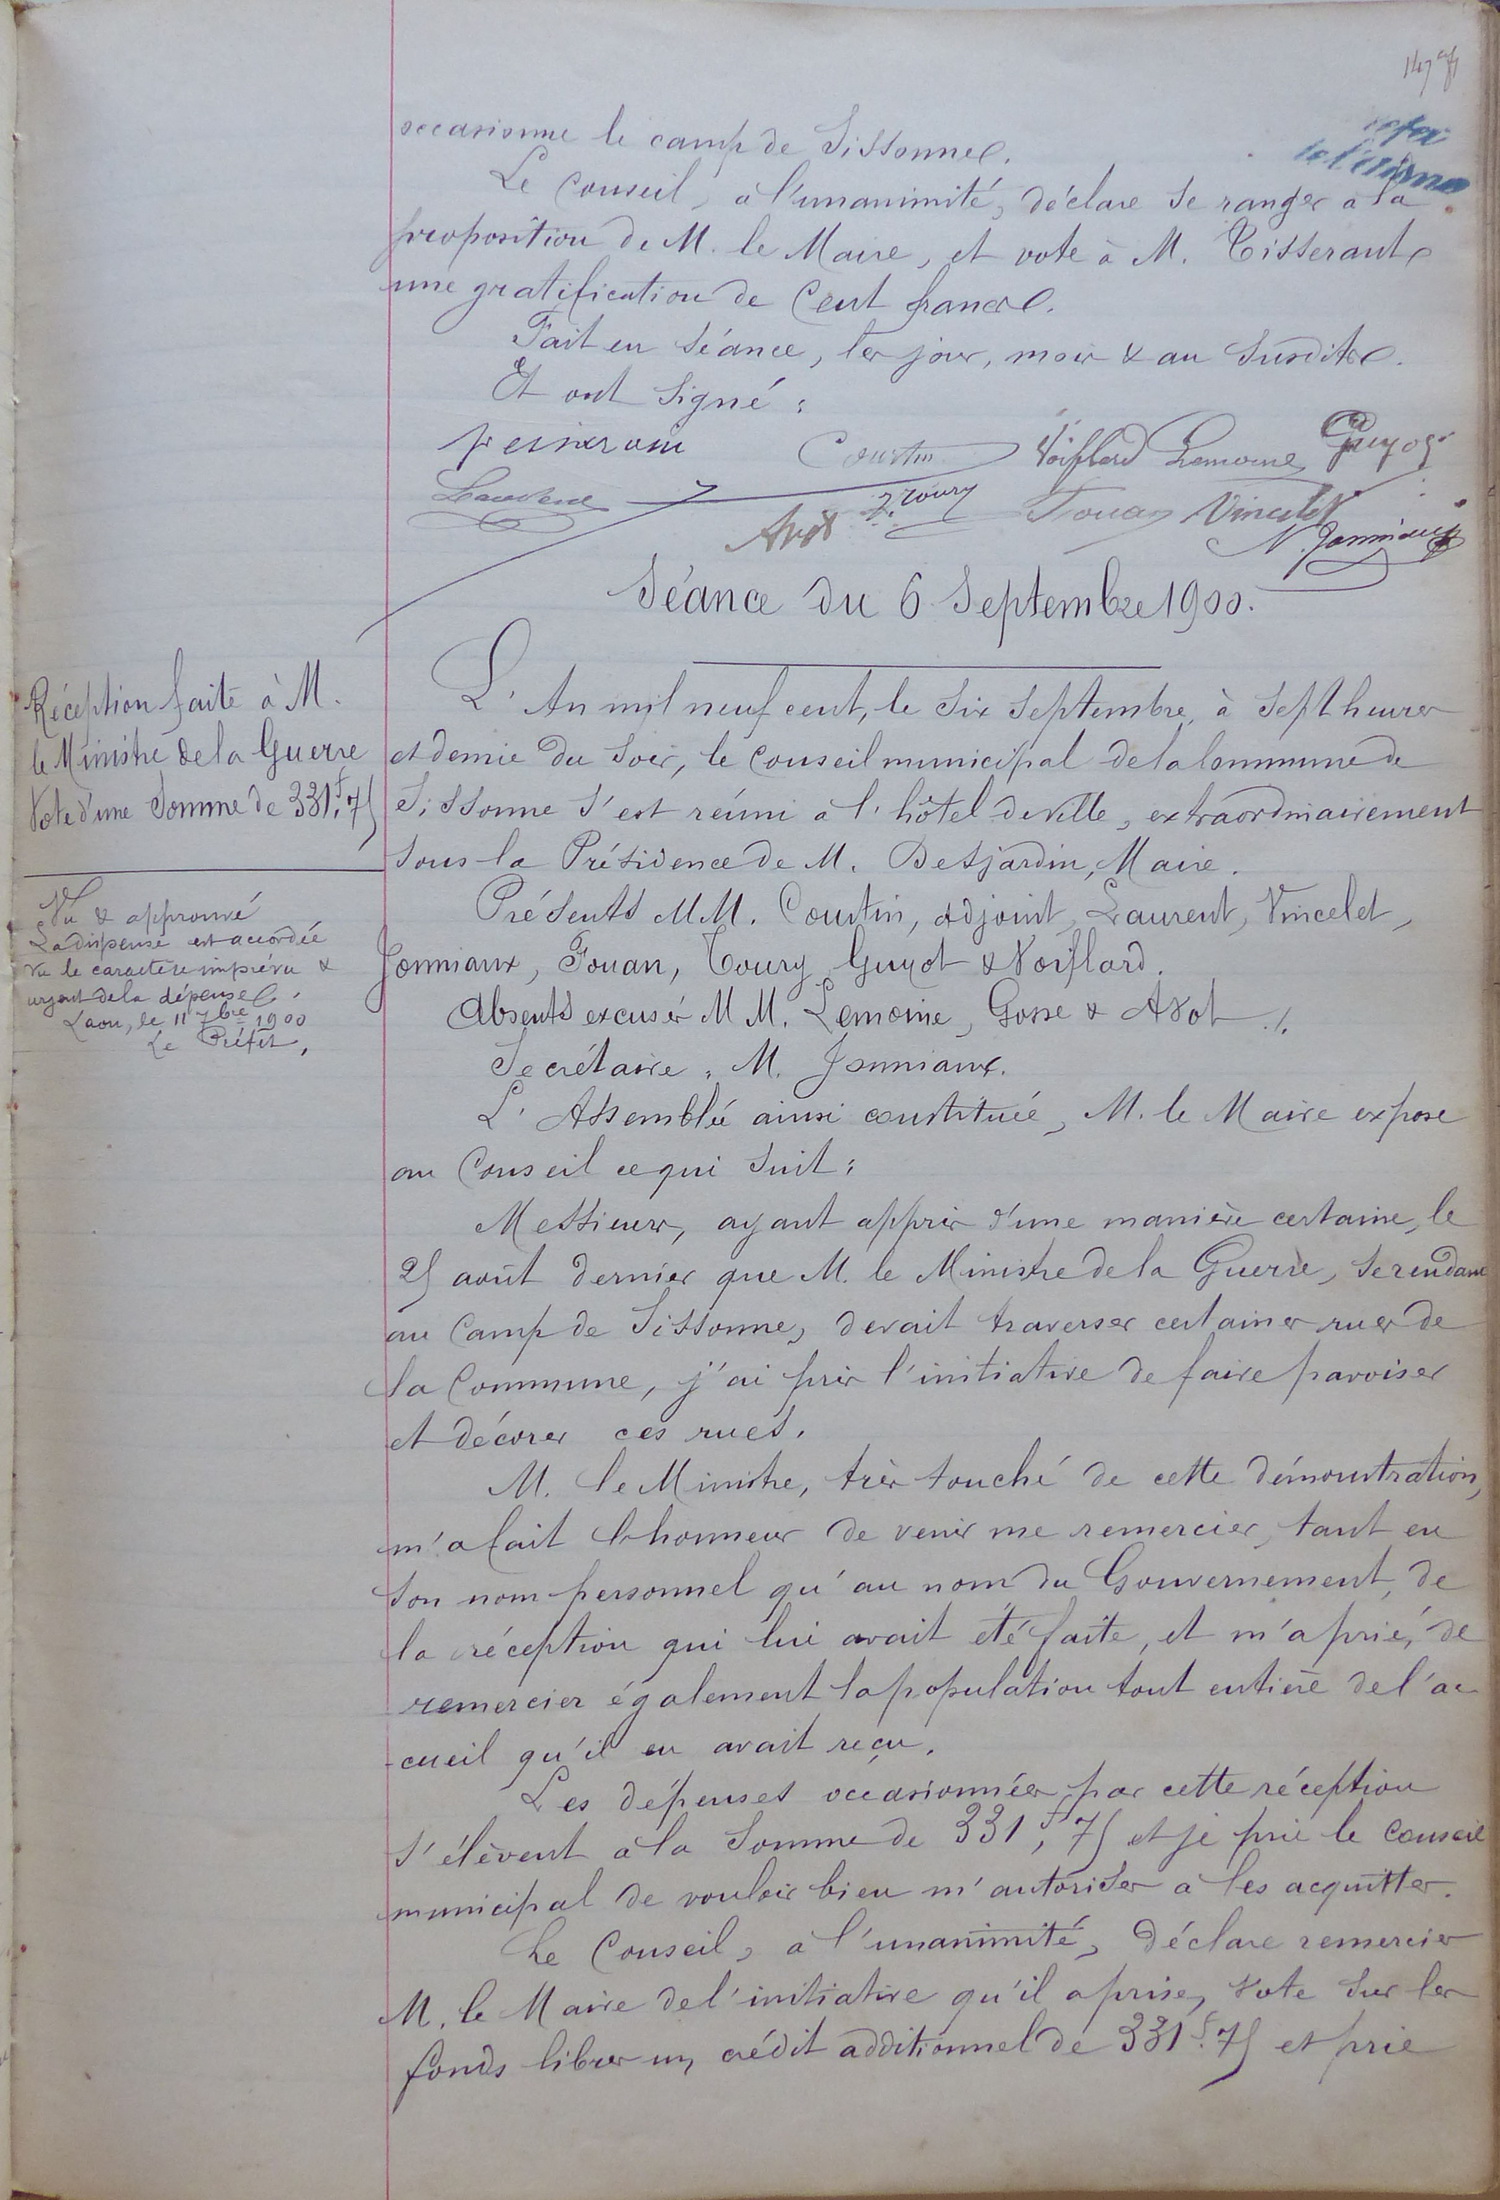 occasionne le camp de Sissonne.
Le Conseil, à l'unanimité, déclare se ranger à la
proposition de M. le Maire, et vote à M. Tisserant
une gratification de Cent francs.
Fait en Séance, les jour, mois & an susdits.
Et ont signé :
Courtin Voiflard Lemoine Guyot
Laurent T. Toury Fouan Vincelet
Avot N. Jonniaux
Séance du 6 Septembre 1900.
Réception faite à M.
le Ministre de la Guerre
Vote d'une Somme de 331f,75
Vu & approuvé
La dispense est accordée
vu le caractère imprévu &
urgent de la dépense.
Laon, le 11 7bre 1900
Le Préfet,
L'An mil neuf cent, le Six Septembre, à Sept heures
et demie du Soir, le Conseil municipal de la Commune de
Sissonne s'est réuni à l'hôtel de Ville, extraordinairement
Sous la Présidence de M. Desjardin, Maire.
Présents MM. Courtin, adjoint, Laurent, Vincelet,
Jonniaux, Fouan, Toury, Guyot & Voiflard.
Absents excusés MM. Lemoine, Gosse & Avot ./.
Secrétaire, M. Jonniaux.
L'Assemblée ainsi constituée, M. le Maire expose
au Conseil ce qui suit :
Messieurs, ayant appris d'une manière certaine, le
25 août dernier que M. le Ministre de la Guerre, se rendant
au Camp de Sissonne, devait traverser certaines rues de
la Commune, j'ai pris l'initiative de faire pavoiser
et décorer ces rues.
M. le Ministre, très touché de cette démonstration,
m'a fait l'honneur de venir me remercier, tant en
son nom personnel qu'au nom du Gouvernement, de
la réception qui lui avait été faite, et m'a prié, de
remercier également la population tout entière de l'ac
-cueil qu'il en avait reçu.
Les dépenses occasionnées par cette réception
s'élèvent à la Somme de 331f,75 et je prie le Conseil
municipal de vouloir bien m'autoriser à les acquitter.
Le Conseil, à l'unanimité, déclare remercier
M. le Maire de l'initiative qu'il a prise, vote sur les
fonds libres un crédit additionnel de 331f.75 et prie